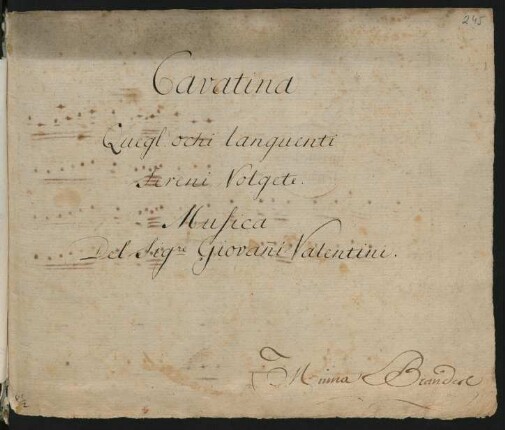 245
Cavatina
Quegl ochi languenti
Sereni Volgete.
Musica
Del Sigre Giovañi Valentini.
Minna Brandes